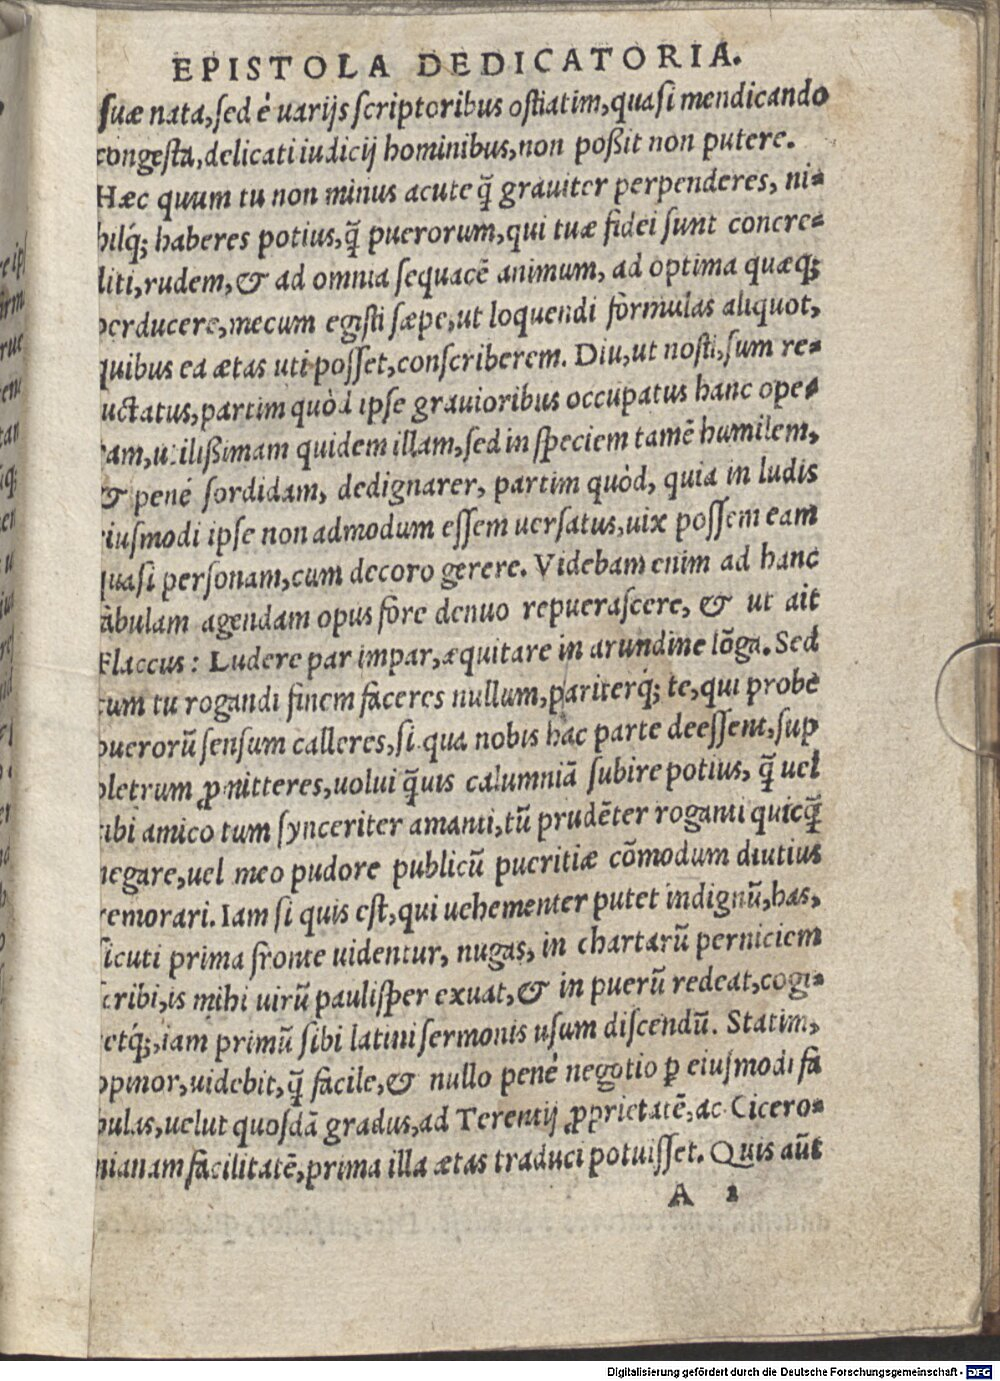 EPISTOLA DEDICATORIA.
suæ nata, sed è uarijs scriptoribus ostiatim, quasi mendicando
congesta, delicati iudicij hominibus, non poßit non putere.
Hæc quum tu non minus acute q̃ grauiter perpenderes, ni-
hilq́; haberes potius, q̃ puerorum, qui tuæ fidei sunt concre-
liti, rudem, & ad omnia sequacē animum, ad optima quæq;
perducere, mecum egisti sæpe, ut loquendi formulas aliquot,
quibus ea ætas uti posset, conscriberem. Diu, ut nosti, sum re-
uctatus, partim quòd ipse grauioribus occupatus hanc ope-
ram, utilißimam quidem illam, sed in speciem tamē humilem,
& penè sordidam, dedignarer, partim quòd, quia in ludis
eiusmodi ipse non admodum essem uersatus, uix possem eam
quasi personam, cum decoro gerere. Videbam enim ad hanc
fabulam agendam opus fore denuo repuerascere, & ut ait
Flaccus: Ludere par impar, æquitare in arundine lōga. Sed
cum tu rogandi finem faceres nullum, pariterq́; te, qui probè
puerorū sensum calleres, si qua nobis hac parte deessent, sup
pletrum ꝓmitteres, uolui q̃uis calumniā subire potius, q̃ uel
tibi amico tum synceriter amanti, tū prudēter roganti quicq̃
negare, uel meo pudore publicū pueritiæ cōmodum diutius
remorari. Iam si quis est, qui uehementer putet indignū, has,
sicuti prima fronte uidentur, nugas, in chartarū perniciem
scribi, is mihi uirū paulisper exuat, & in puerū redeat, cogi-
tetq́;, iam primū sibi latini sermonis usum discendū. Statim,
opinor, uidebit, q̃ facile, & nullo penè negotio ꝑ eiusmodi fa
bulas, uelut quosdā gradus, ad Terentij ꝓprietatē, ac Cicero-
nianam facilitatē, prima illa ætas traduci potuisset. Quis aūt
A 2
Digitalisierung gefördert durch die Deutsche Forschungsgemeinschaft - DFG